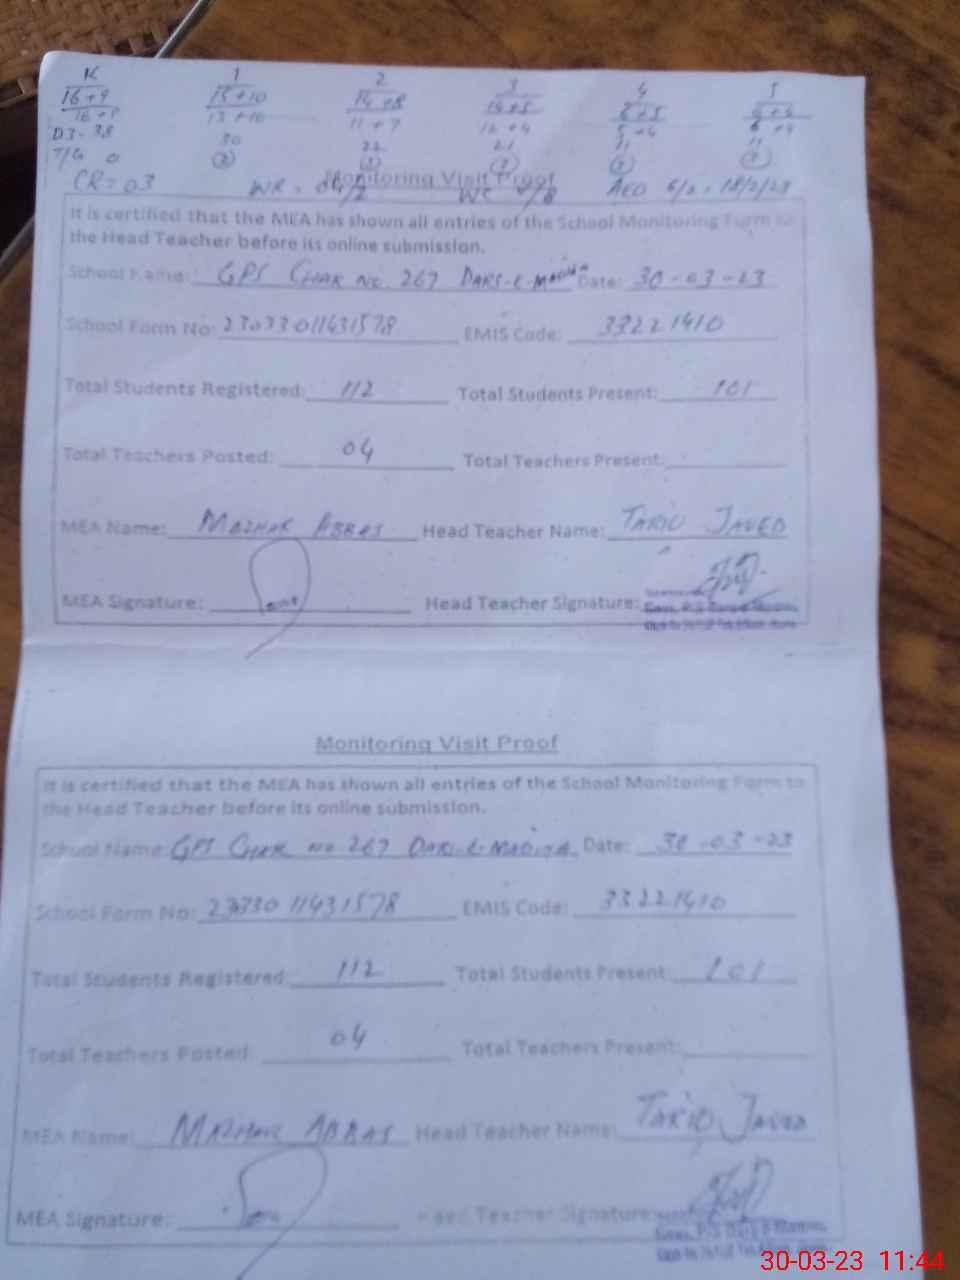 K 1 2 3 4 5
16+9 15+10 14+8 14+5 6+5
13+10 11+7 5+4
30 22 21 11 11
T/G 0
CR = 03 WR = AEO 6/2, 18/2/23
Monitoring Visit Proof
It is certified that the MEA has shown all entries of the School Monitoring Form to
the Head Teacher before its online submission.
School Name: GPS CHAK NO. 267 DARS-E-MADINA Date: 30-03-23
School Form No: 23033011431578 EMIS Code: 33221410
Total Students Registered: 112 Total Students Present: 101
Total Teachers Posted: 04 Total Teachers Present:
MEA Name: MAZHAR ABBAS Head Teacher Name: TARIQ JAVED
MEA Signature: Head Teacher Signature:
Monitoring Visit Proof
It is certified that the MEA has shown all entries of the School Monitoring Form to
the Head Teacher before its online submission.
School Name: GPS CHAK NO 267 DARS-E-MADINA Date: 30-03-23
School Form No: 23033011431578 EMIS Code: 33221410
Total Students Registered: 112 Total Students Present: 101
Total Teachers Posted: 04 Total Teachers Present:
MEA Name: MAZHAR ABBAS Head Teacher Name: TARIQ JAVED
MEA Signature: Head Teacher Signature:
30-03-23 11:44